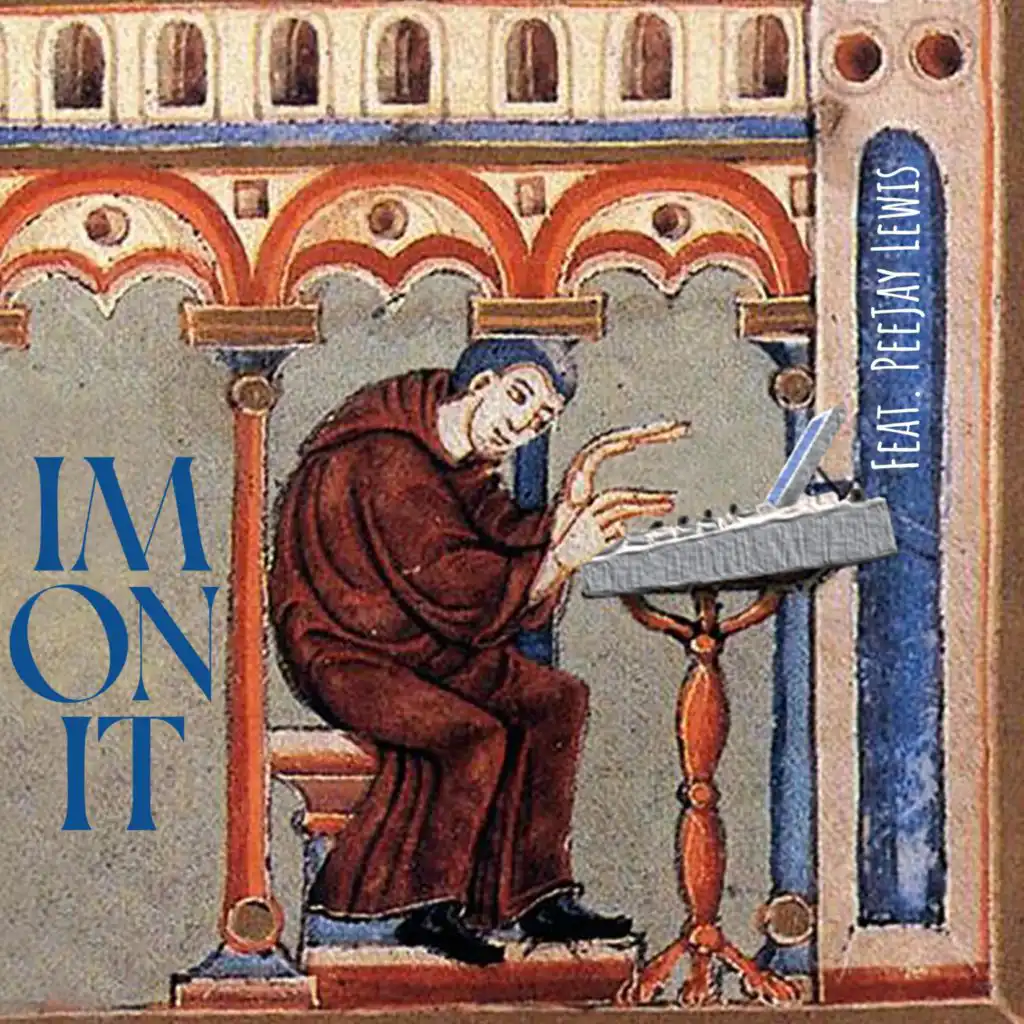 IM
ON
IT
FEAT. PEEJAY LEWIS